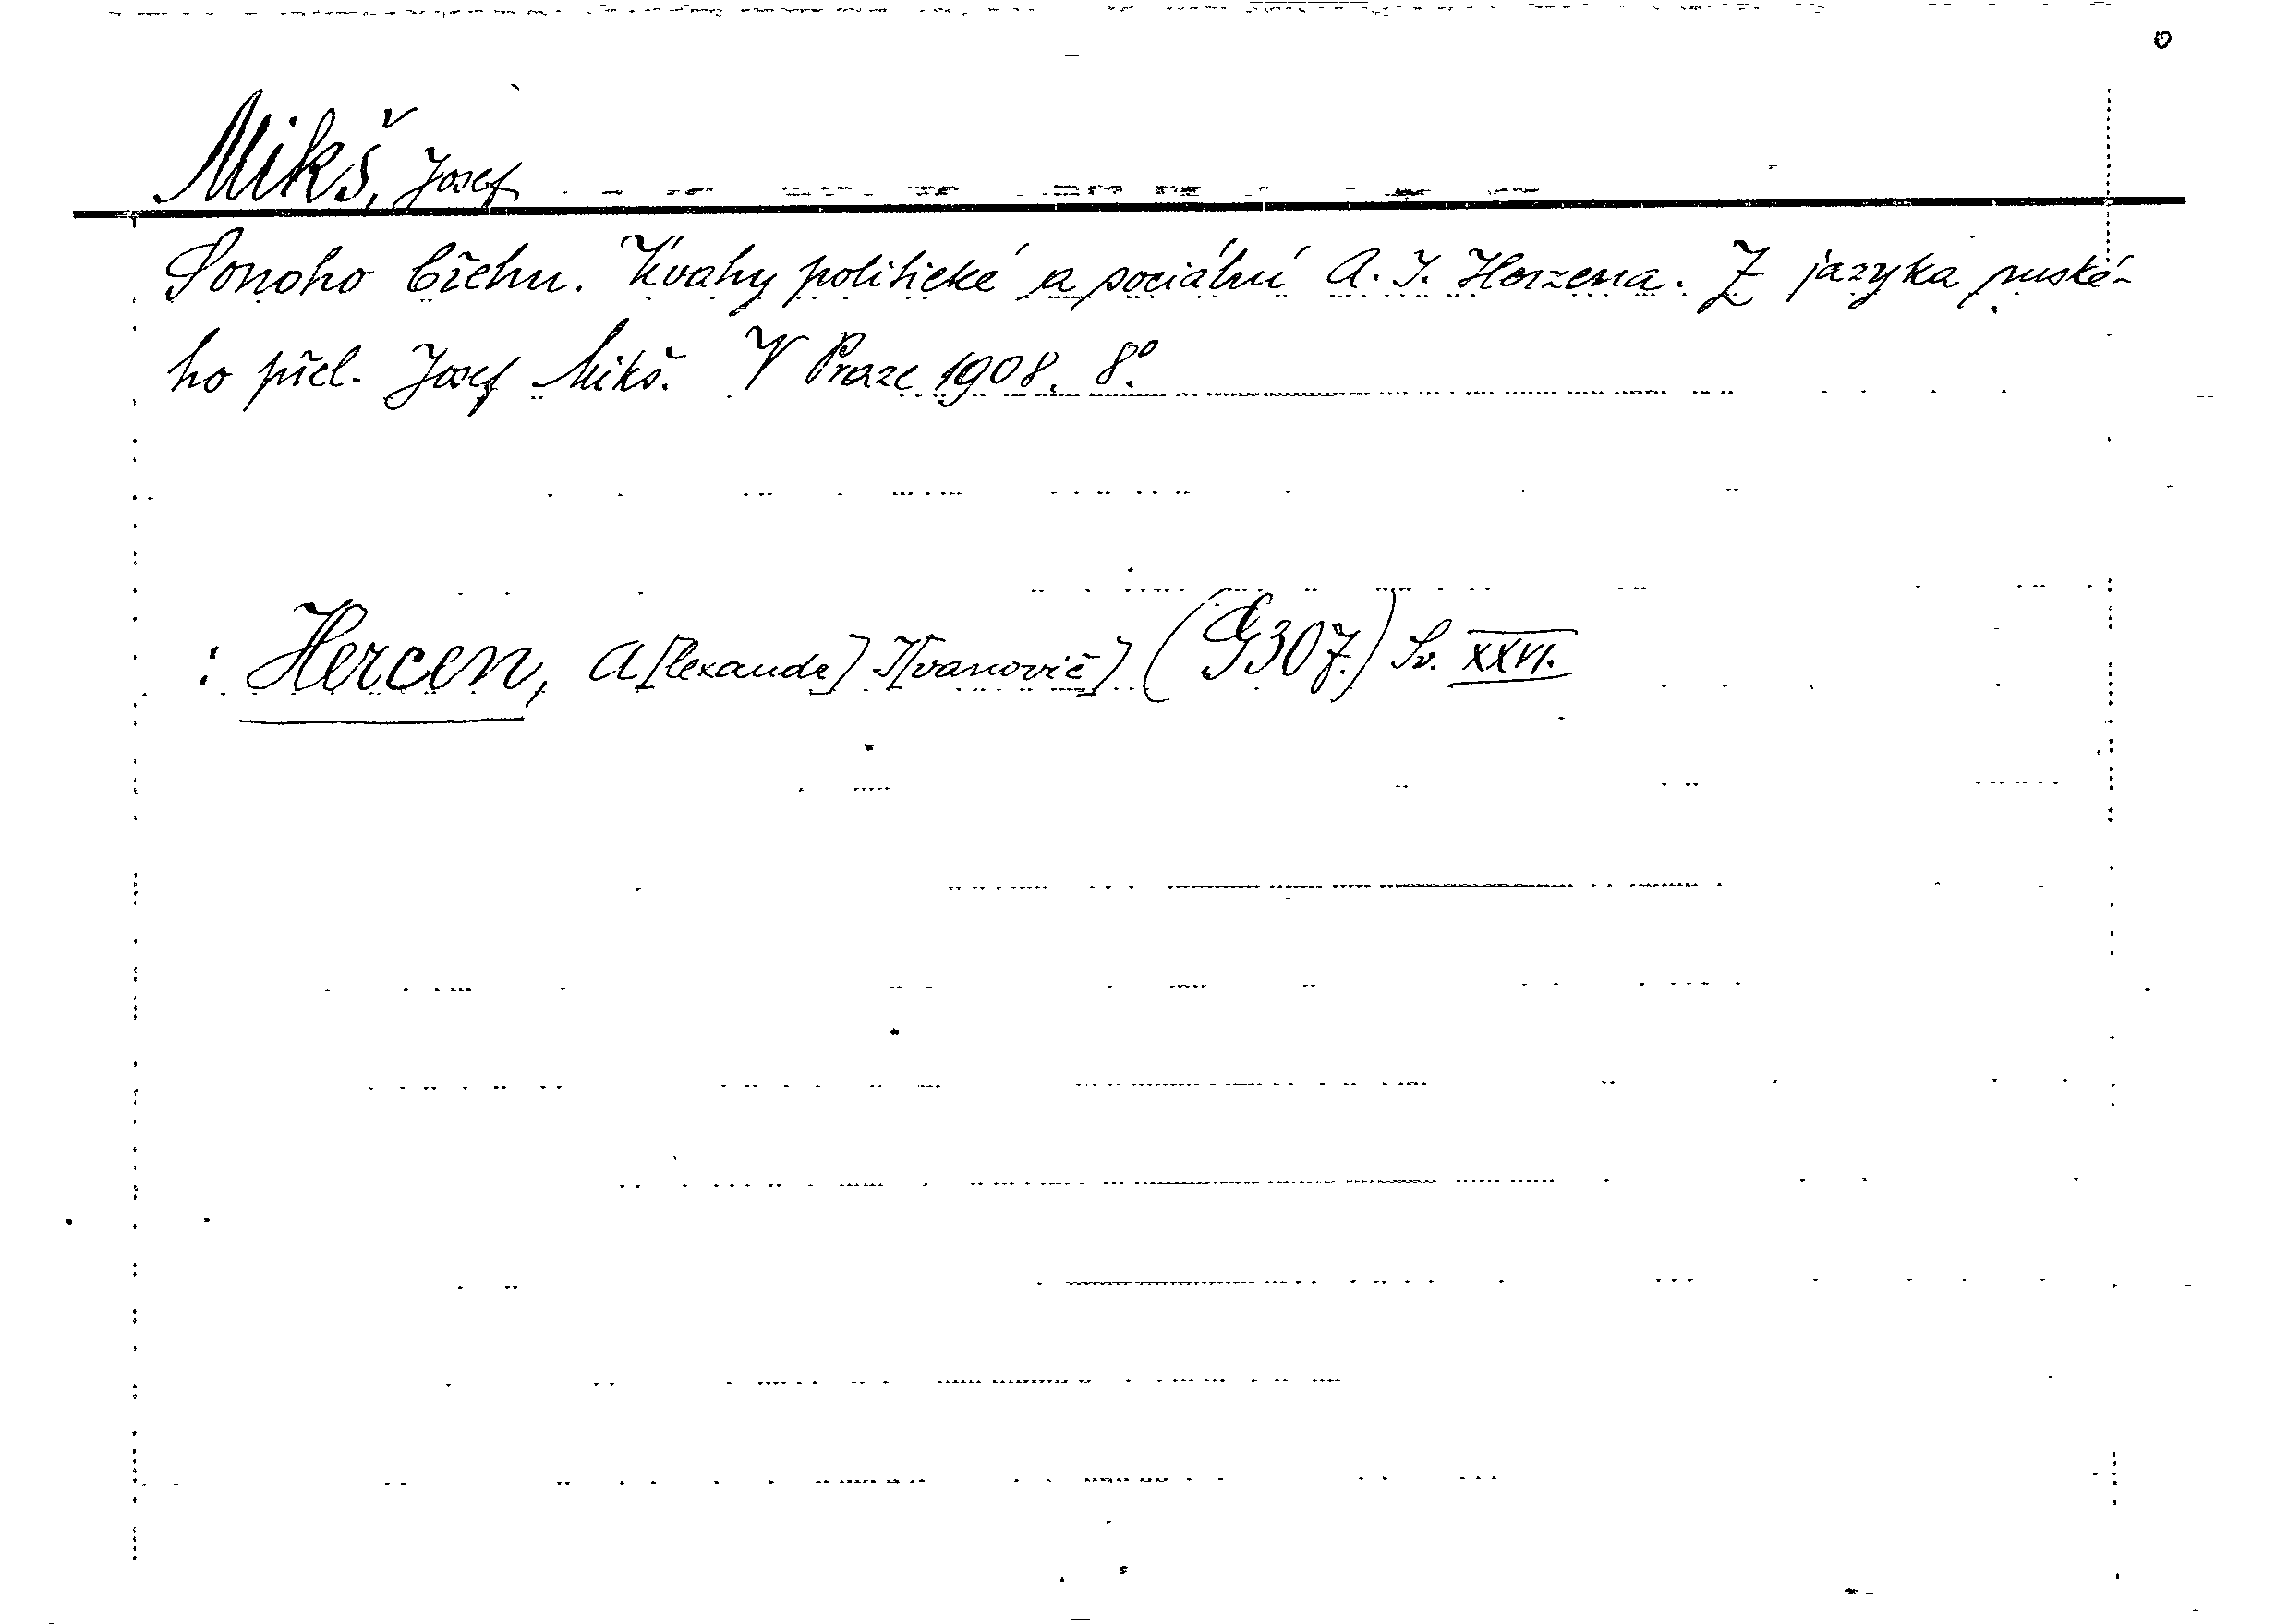 Mikš, Josef
S onoho břehu. Úvahy politické a sociální A. I. Herzena. Z jazyka ruské-
ho přel. Josef Mikš. V Praze 1908. 8°.
: Hercen, A[lexandr] I[vanovič] (G307.) Sv. XXVI.